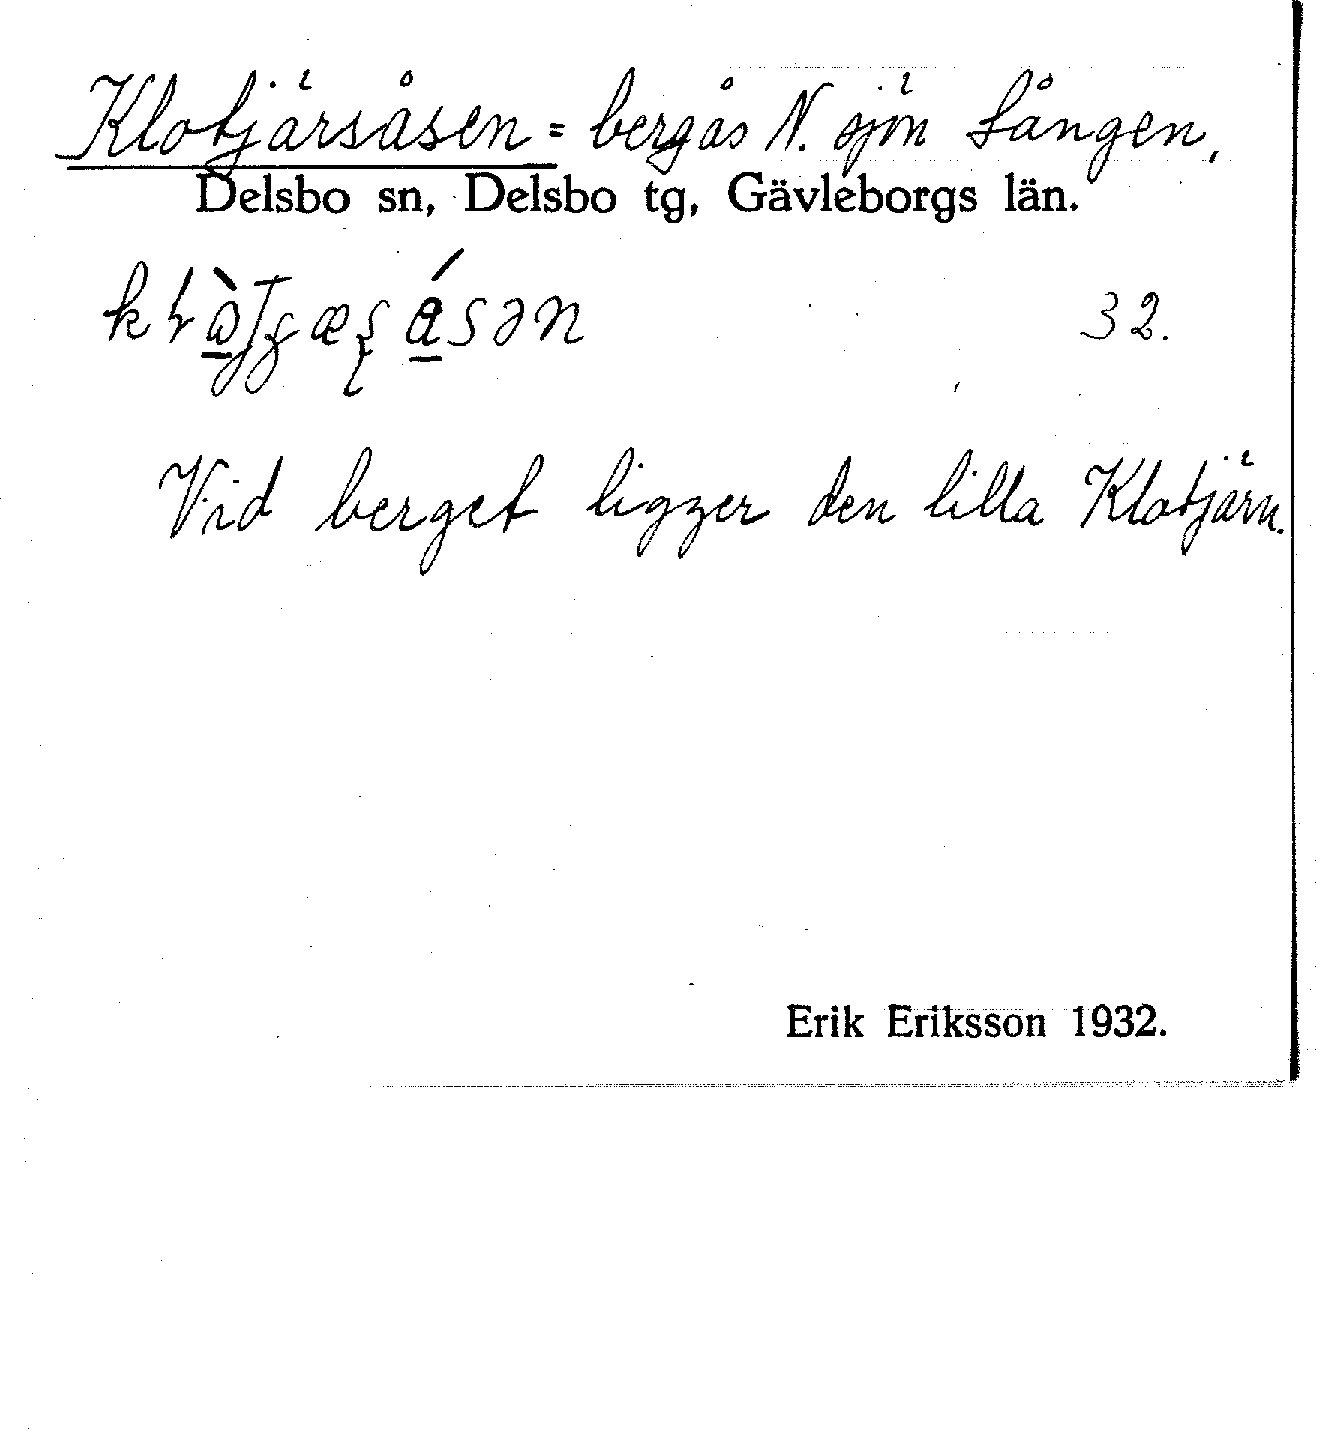 Klotjärsåsen = bergås N. sjön Lången,
Delsbo sn, Delsbo tg, Gävleborgs län.
32.
Vid berget ligger den lilla Klotjärn.
Erik Eriksson 1932.